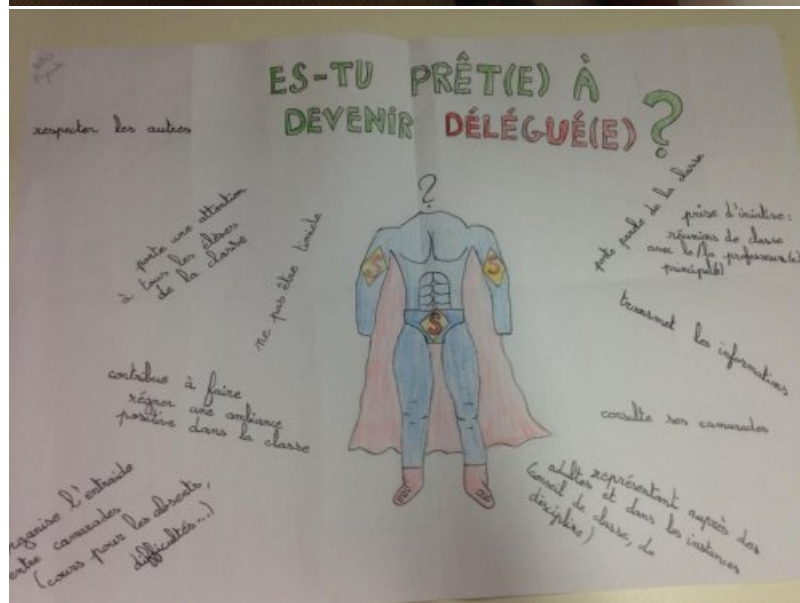 ES-TU PRÊT(E) À
DEVENIR DÉLÉGUÉ(E) ?
respecter les autres
porte une attention
à tous les élèves
de la classe
ne pas être timide
contribue à faire
régner une ambiance
positive dans la classe
organise l'entraide
entre camarades
(cours pour les absents,
difficultés...)
?
S
S
S
porte parole de la classe
prise d'iniative :
réunions de classe
avec le/la professeur(e)
principal(e)
transmet les informations
consulte ses camarades
représentant auprès des
adultes et dans les instances
(conseil de classe, de
discipline)